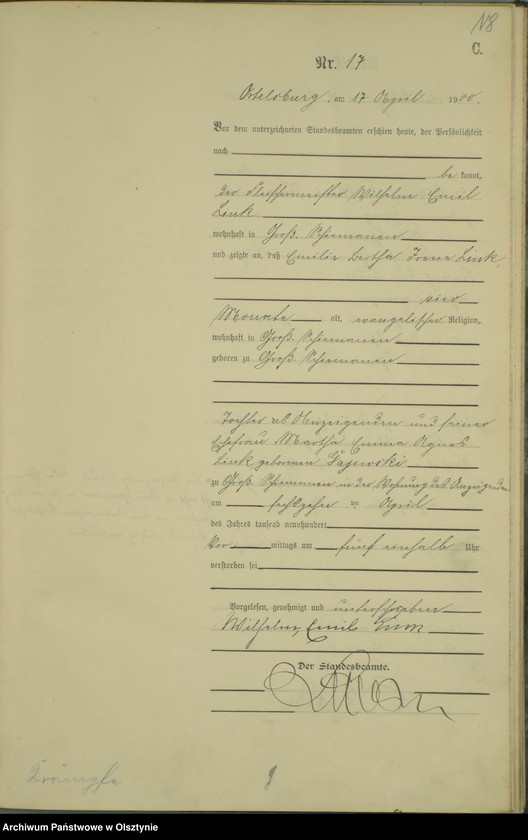 118
C.
Nr. 17
Ortelsburg, am 17 April 1900.
Vor dem unterzeichneten Standesbeamten erschien heute, der Persönlichkeit
nach
be kannt,
der Fleischermeister Wilhelm Emil
Link
wohnhaft in Groß. Schiemanen
und zeigte an, daß Emilie Bertha Irene Link,
vier
Monate alt, evangelischer Religion,
wohnhaft in Groß. Schiemanen
geboren zu Groß. Schiemanen
Tochter des Anzeigenden und seiner
Ehefrau Martha Emma Agnes
Link, geborenen Gajewski
zu Groß. Schiemanen in der Wohnung des Anzeigenden
am sechszehn ten April
des Jahres tausend neunhundert
Vor mittags um fünf einhalb Uhr
verstorben sei
Vorgelesen, genehmigt und unterschrieben
Wilhelm Emil Link
Der Standesbeamte.
Krämpfe
Archiwum Państwowe w Olsztynie